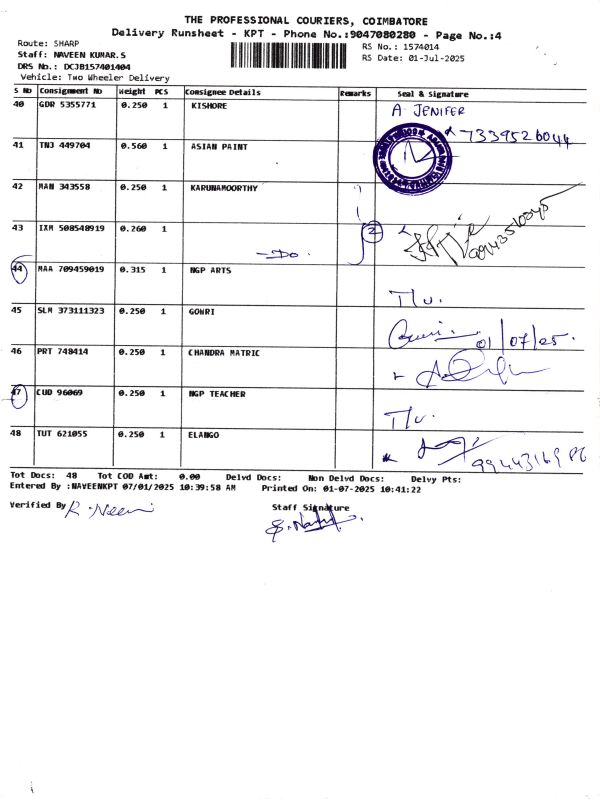 THE PROFESSIONAL COURIERS, COIMBATORE
Delivery Runsheet - KPT - Phone No.:9047080280 - Page No.:4
Route: SHARP
Staff: NAVEEN KUMAR.S
DRS No.: DCJB157401404
Vehicle: Two Wheeler Delivery
RS No.: 1574014
RS Date: 01-Jul-2025
S No Consignment No Weight PCS Consignee Details Remarks Seal & Signature
40 GDR 5355771 0.250 1 KISHORE A. JENIFER
7339526044
41 TNJ 449704 0.560 1 ASIAN PAINT
42 MAN 343558 0.250 1 KARUNAMOORTHY
43 IXM 508548919 0.260 1 -Do. 2
44 MAA 709459019 0.315 1 NGP ARTS T/u.
45 SLM 373111323 0.250 1 GOWRI Gowri. 01/07/25.
46 PRT 748414 0.250 1 CHANDRA MATRIC
47 CUD 96069 0.250 1 NGP TEACHER T/u.
48 TUT 621055 0.250 1 ELANGO
Tot Docs: 48 Tot COD Amt: 0.00 Delvd Docs: Non Delvd Docs: Delvy Pts:
Entered By :NAVEENKPT 07/01/2025 10:39:58 AM Printed On: 01-07-2025 10:41:22
Verified By
Staff Signature